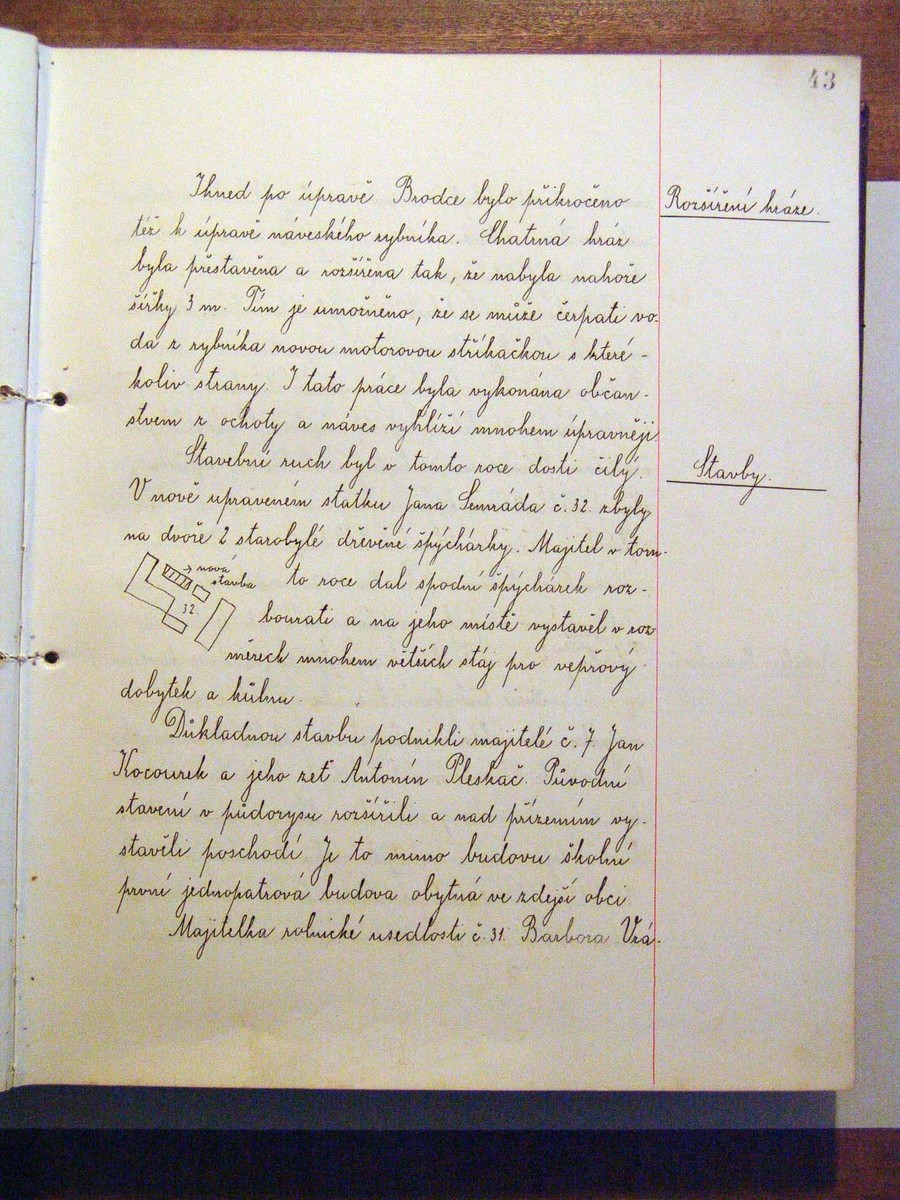 43
Ihned po úpravě Brodce bylo přikročeno
Rozšíření hráze.
též k úpravě náveského rybníka. Chatrná hráz
byla přestavěna a rozšířena tak, že nabyla nahoře
šířky 3 m. Tím je umožněno, že se může čerpati vo-
da z rybníka novou motorovou stříkačkou s které-
koliv strany. I tato práce byla vykonána občan-
stvem z ochoty a náves vyhlíží mnohem úpravněji.
Stavební ruch byl v tomto roce dosti čilý.
Stavby.
V nově upraveném statku Jana Sennáda č. 32. zbyly
na dvoře 2 starobylé dřevěné špýchárky. Majitel v tom-
→ nová
stavba
32.
to roce dal spodní špýchárek roz-
bourati a na jeho místě vystavěl v roz-
měrech mnohem větších stáj pro vepřový
dobytek a kůlnu.
Důkladnou stavbu podnikli majitelé č. 7. Jan
Kocourek a jeho zeť Antonín Pleskač. Původní
stavení v půdorysu rozšířili a nad přízemím vy-
stavěli poschodí. Je to mimo budovu školní
první jednopatrová budova obytná ve zdejší obci.
Majitelka rolnické usedlosti č. 31. Barbora Vrá-